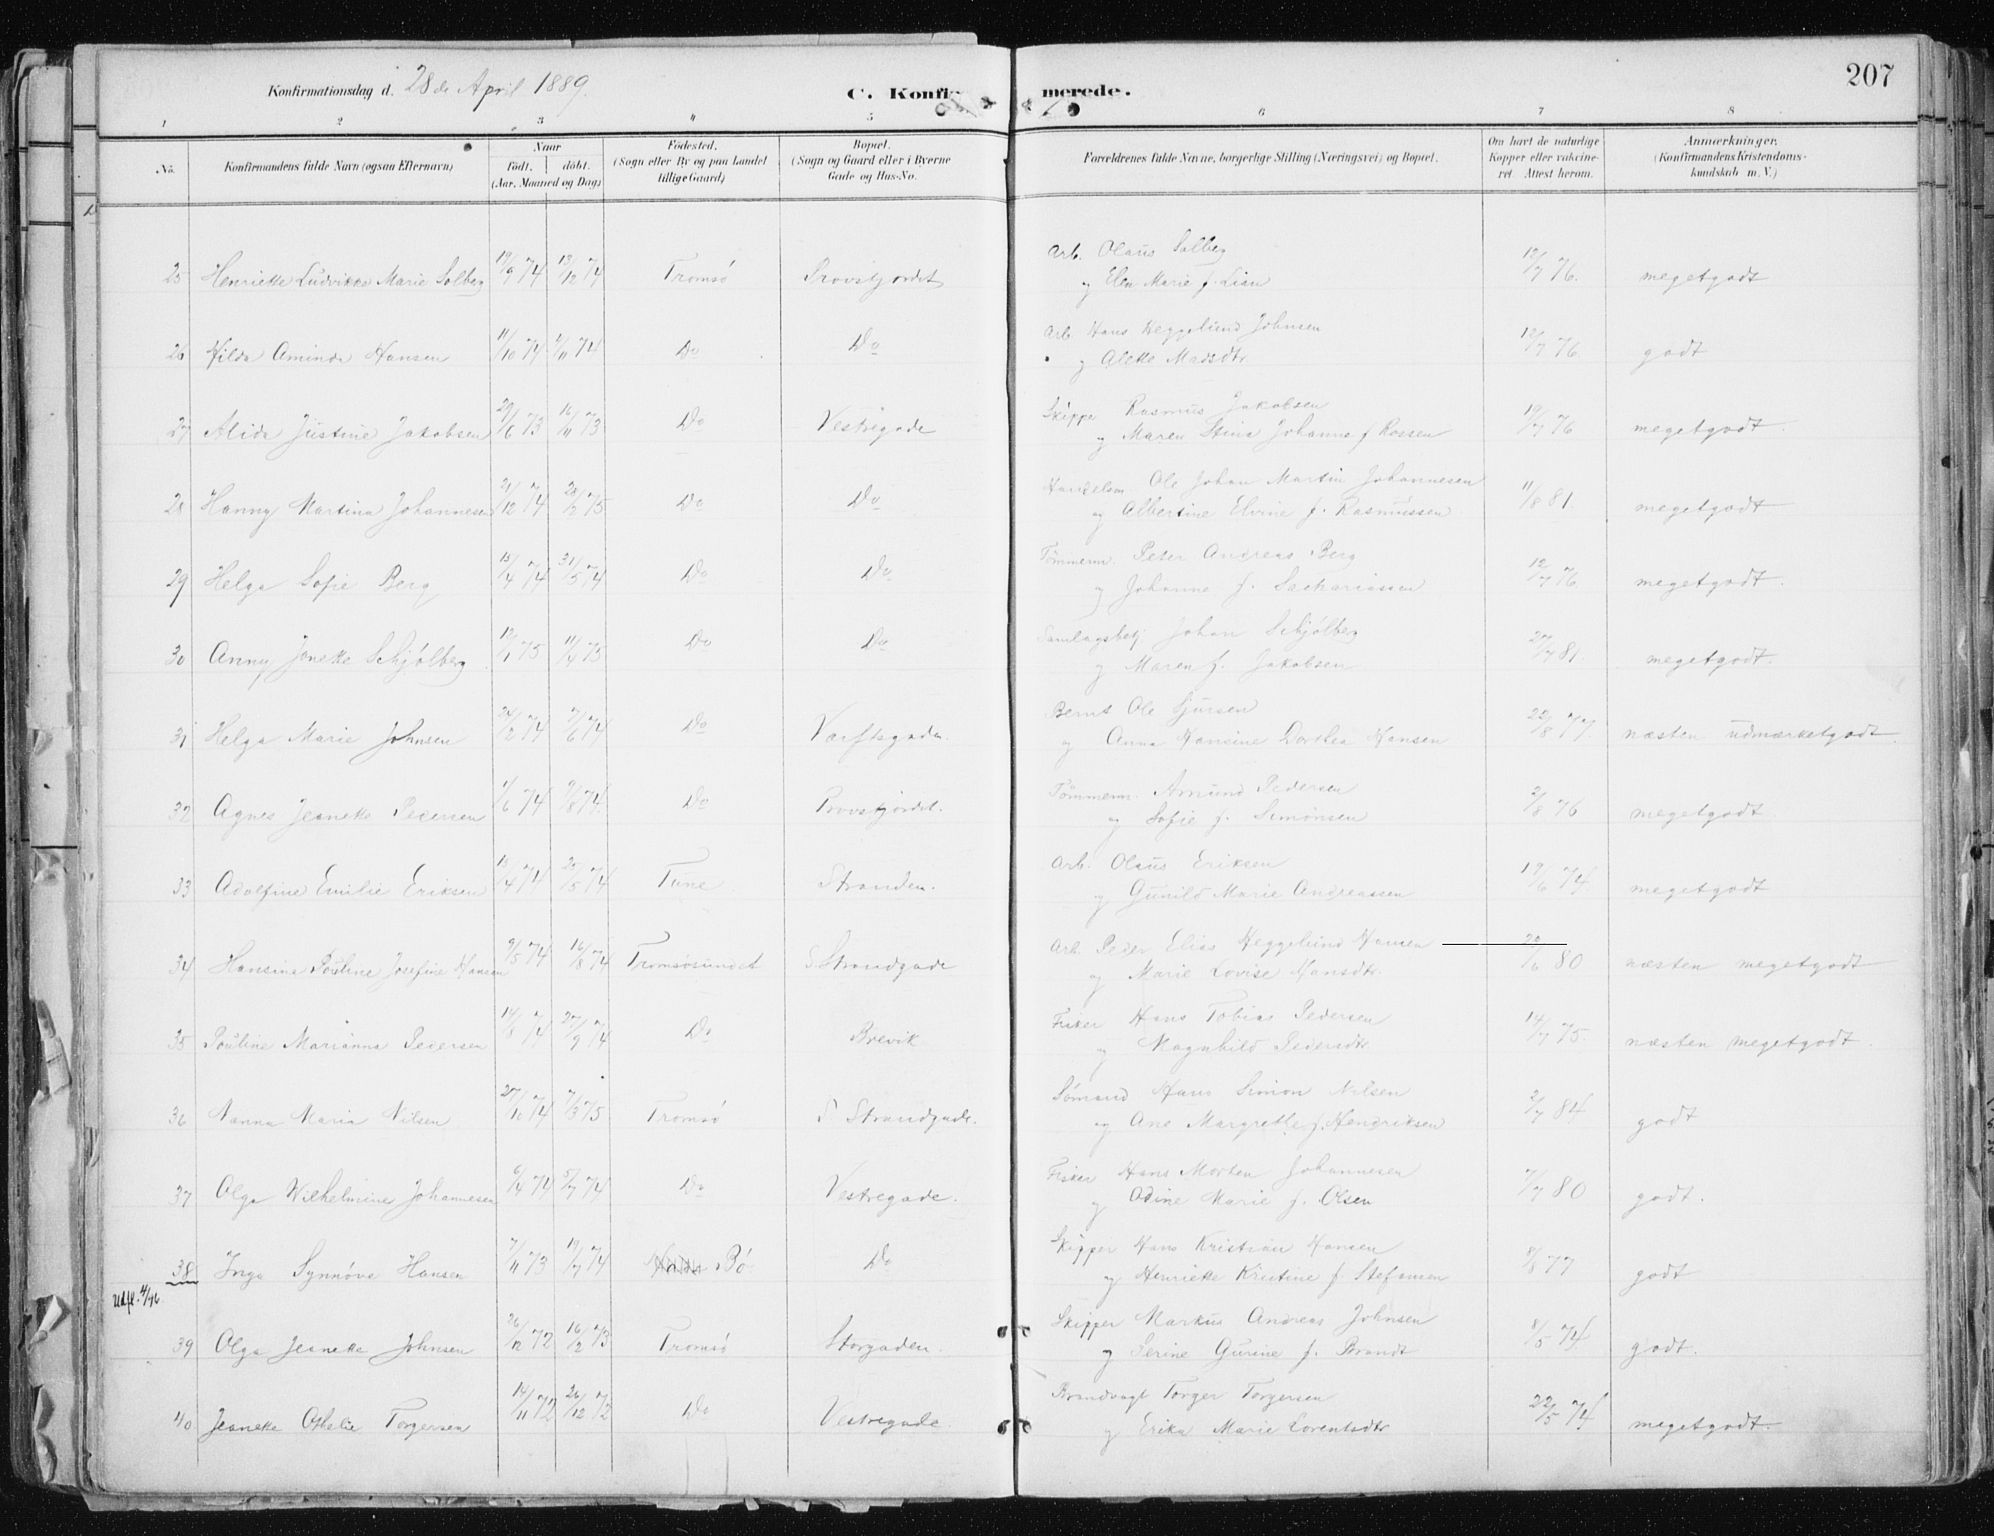 Konfirmationsdag d. 28de April 1889.
C. Konfirmerede.
207
1 2 3 4 5 6 7 8
No.
Konfirmandens fulde Navn (ogsaa Efternavn)
Naar
Födt. döbt.
(Aar, Maaned og Dag)
Födested.
(Sogn eller By og paa Landet
tillige Gaard)
Bopæl.
(Sogn og Gaard eller i Byerne
Gade og Hus-No.
Forældrenes fulde Navne, borgerlige Stilling (Næringsvei) og Bopæl.
Om havt de naturlige
Kopper eller vakcine-
ret. Attest herom.
Anmærkninger.
(Konfirmandens Kristendoms-
kundskab m. V.)
25 Henriette Ludvikke Marie Solberg 19/9 74 13/12 74 Tromsö Provstjordet Arb. Olaus Solberg 12/7 76. megetgodt
og Elen Marie f. Lian
26 Hilda Aminda Hansen 11/10 74 /11 74 Do Do Arb. Hans Heggelund Johnsen 12/7 76 godt
og Alette Madsdtr.
27 Alida Justine Jakobsen 29/6 73 16/11 73 Do Vestregade Skipper Rasmus Jakobsen 19/7 76 megetgodt.
og Maren Stina Johanne f. Rossen
28 Hanny Martina Johannesen 21/12 74 28/2 75 Do Do Handelsm. Ole Johan Martin Johannesen 11/8 81. megetgodt
og Albertine Elvine f. Rasmussen
29 Helga Sofie Berg 15/4 74 31/5 74 Do Do Tömmerm. Peter Andreas Berg 12/7 76 megetgodt.
og Johanne f. Sachariassen
30 Anny Janette Schjölberg 12/1 75 11/4 75 Do Do Samlagsbetj. Johan Schjölberg 27/7 81. megetgodt.
og Maren f. Jakobsen
31 Helga Marie Johnsen 24/2 74 7/6 74 Do Værftsgaden. Bernt Ole Sjursen 22/8 77. næsten udmærketgodt.
og Anna Hansine Dorthea Hansen
32 Agnes Jeanette Pedersen 1/6 74 9/8 74. Do Provstjordet. Tömmerm. Amund Pedersen 2/8 76 megetgodt.
og Sofie f. Simonsen
33 Adolfine Emilie Eriksen 13/4 74 25/5 74 Tune Stranden. Arb. Olaus Eriksen 19/6 74. megetgodt
og Gunild Marie Andreassen
34 Hansine Pauline Josefine Hansen 9/5 74 16/8 74 Tromsösundet S. Strandgade Arb. Peder Elias Heggelund Hansen /6 80 næsten megetgodt
og Marie Lovise Hansdtr.
35 Pauline Marianna Pedersen 14/8 74 27/9 74 Do Brevik Fisker Hans Tobias Pedersen 14/7 75. næsten megetgodt.
og Magnhild Pedersdtr.
36 Nanna Maria Nilsen 27/10 74 7/3 75 Tromsö S Strandgade. Sömand Hans Simon Nilsen 2/7 84 godt
og Ane Margrethe f. Hendriksen
37 Olga Wilhelmine Johannesen 6/4 74 5/7 74 Do Vestregade. Fisker Hans Morten Johannesen 7/7 80 godt.
og Adine Marie f. Olsen
38 Inga Synnöve Hansen 7/11 73 19/7 74 Bö Do Skipper Hans Kristian Hansen 8/8 77 godt
Udfl. 4/96 og Henriette Kristine f. Stefansen
39 Olga Jeanette Johnsen 26/12 72 16/2 73 Tromsö Storgaden. Skipper Markus Andreas Johnsen 8/5 74 godt.
og Serine Gurine f. Brandt
40 Jeanette Othelie Torgersen 14/11 72 26/12 72 Do Vestregade. Brandvagt Torger Torgersen 22/5 74 megetgodt.
og Erika Marie Lorentsdtr